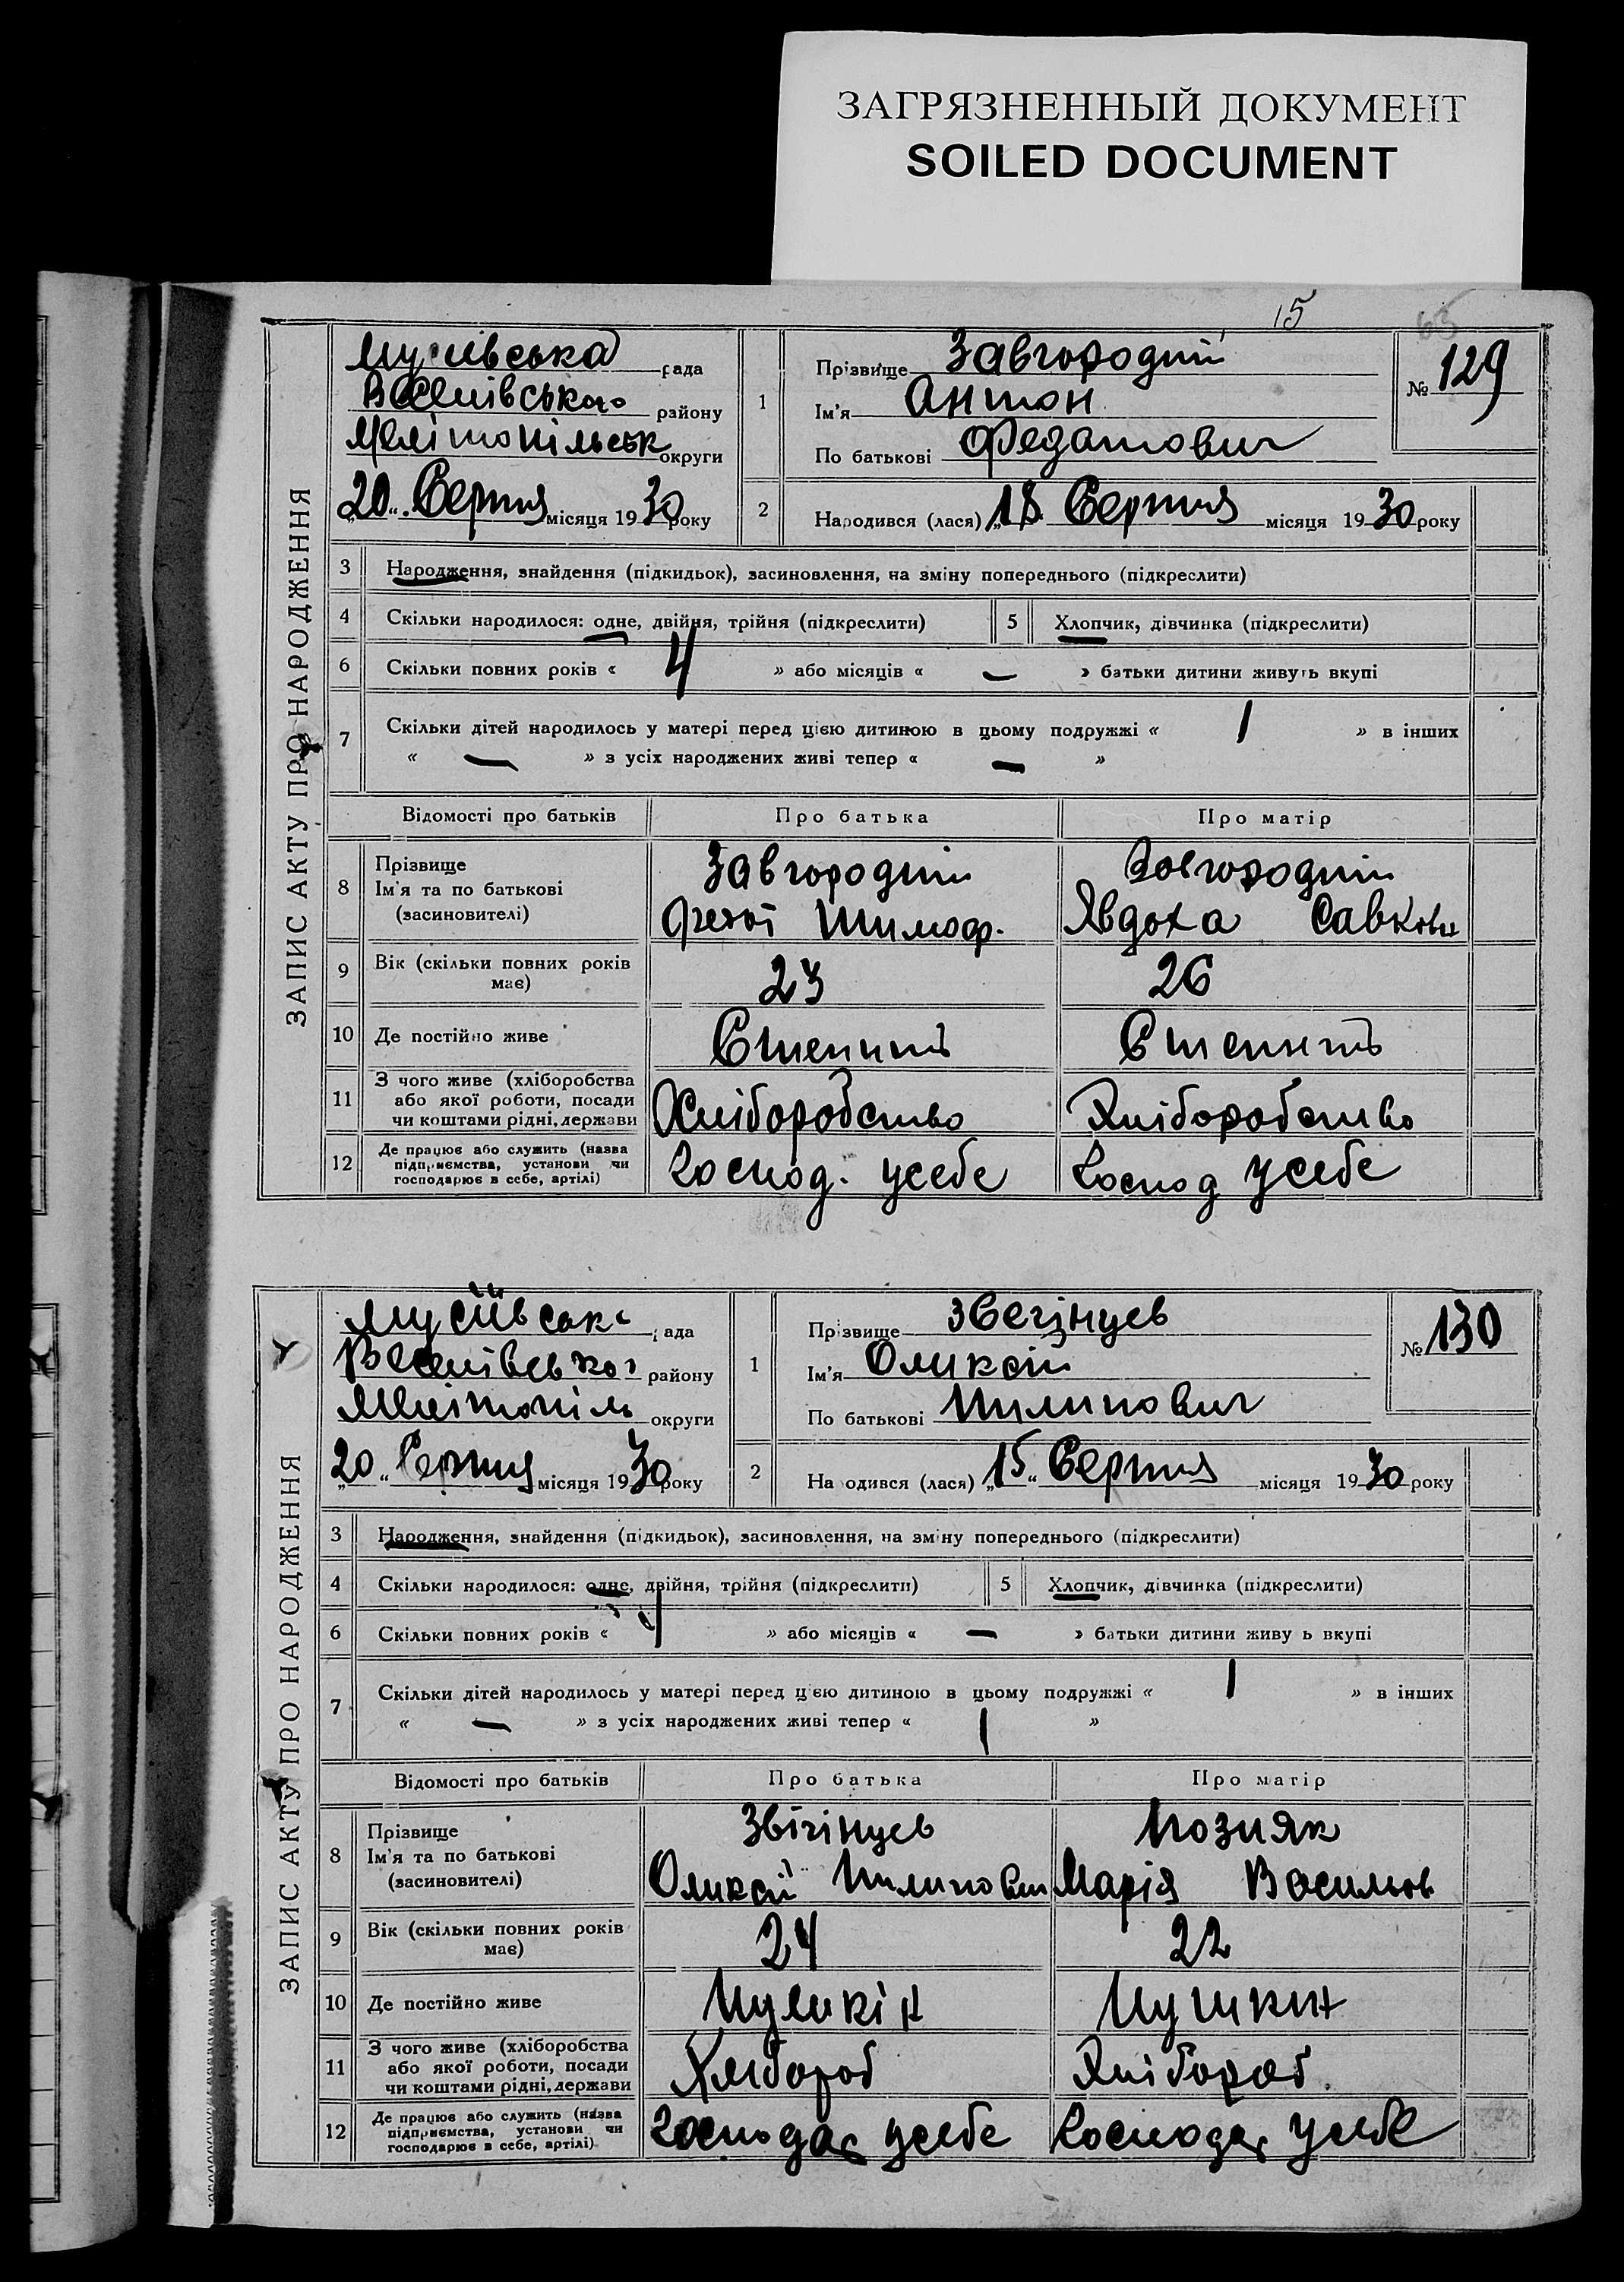 ЗАГРЯЗНЕННЫЙ ДОКУМЕНТ
SOILED DOCUMENT
15
63
ЗАПИС АКТУ ПРО НАРОДЖЕННЯ
рада
району
Мелітопільськ округи
„20“ Серпня місяця 1930 року
1
Прізвище Завгородній
Ім'я Антон
По батькові
№ 129
2
Народився (лася) „18 Серпня місяця 1930 року
3 Народження, знайдення (підкидьок), засиновлення, на зміну попереднього (підкреслити)
4 Скільки народилося: одне, двійня, трійня (підкреслити) 5 Хлопчик, дівчинка (підкреслити)
6 Скільки повних років « 4 » або місяців « — » батьки дитини живуть вкупі
7 Скільки дітей народилось у матері перед цією дитиною в цьому подружжі « 1 » в інших
« — » з усіх народжених живі тепер « — »
Відомості про батьків Про батька Про матір
8 Прізвище
Ім'я та по батькові
(засиновителі)
Завгородній
Тимоф.
Завгородній
Явдоха Савков
9 Вік (скільки повних років має) 23 26
10 Де постійно живе
11 З чого живе (хліборобства
або якої роботи, посади
чи коштами рідні, держави
Хліборобство Хліборобство
12 Де працює або служить (назва
підприємства, установи чи
господарює в себе, артілі)
Господ. усебе Господ усебе
ЗАПИС АКТУ ПРО НАРОДЖЕННЯ
Мусіївськ рада
району
Мелітопіль округи
„20“ Серпня місяця 1930 року
1
Прізвище Звегінцев
Ім'я Оликсій
По батькові Пилипович
№ 130
2
На одився (лася) „15“ Серпня місяця 1930 року
3 Народження, знайдення (підкидьок), засиновлення, на зміну попереднього (підкреслити)
4 Скільки народилося: одне, двійня, трійня (підкреслити) 5 Хлопчик, дівчинка (підкреслити)
6 Скільки повних років « » або місяців « — » батьки дитини живу ь вкупі
7 Скільки дітей народилось у матері перед цією дитиною в цьому подружжі « 1 » в інших
« — » з усіх народжених живі тепер « 1 »
Відомості про батьків Про батька Про матір
8 Прізвище
Ім'я та по батькові
(засиновителі)
Звігінцев
Оликсій Пилипович
Позняк
Марія Васильов
9 Вік (скільки повних років має) 24 22
10 Де постійно живе Пушкін Пушкин
11 З чого живе (хліборобства
або якої роботи, посади
чи коштами рідні, держави
Хлібороб Хлібороб
12 Де працює або служить (назва
підприємства, установи чи
господарює в себе, артілі)
Господар усебе Господар усебе